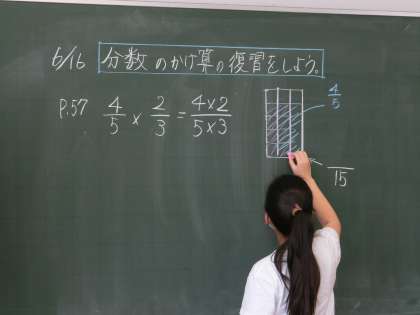 6/16 分数のかけ算の復習をしよう。
P.57 4/5 × 2/3 = 4×2/5×3
4/5
/15